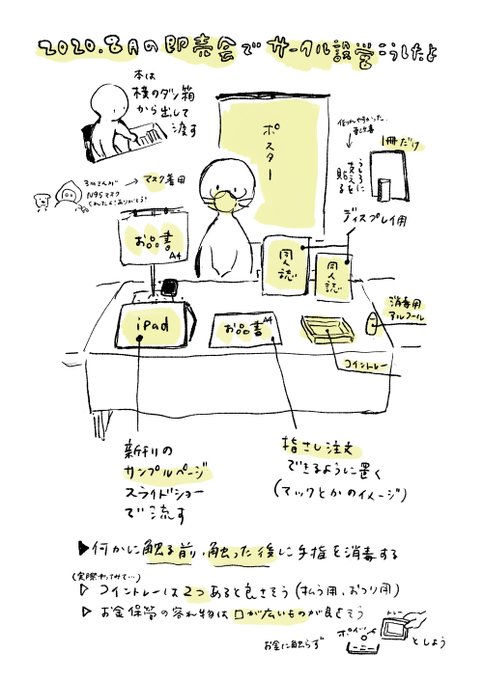 2020.8月の即売会でサークル設営こうしたよ
本は
横のダン箱
から出して
渡す
ポスター
1冊だけ
うしろに
支えを
貼る
マスク着用
N95マスク
ディスプレイ用
お品書
A4
同人誌
同人誌
消毒用
アルコール
iPad
お品書
A4
コイントレー
新刊の
サンプルページ
スライドショー
で流す
指さし注文
できるように置く
(マックとかのイメージ)
▶何かに触る前、触った後に手指を消毒する
(実際やってみて…)
▷コイントレーは2つあると良さそう(払う用、おつり用)
▷お金保管の容れ物は口が広いものが良さそう
お金に触らず
ポイッ
トレー
としよう